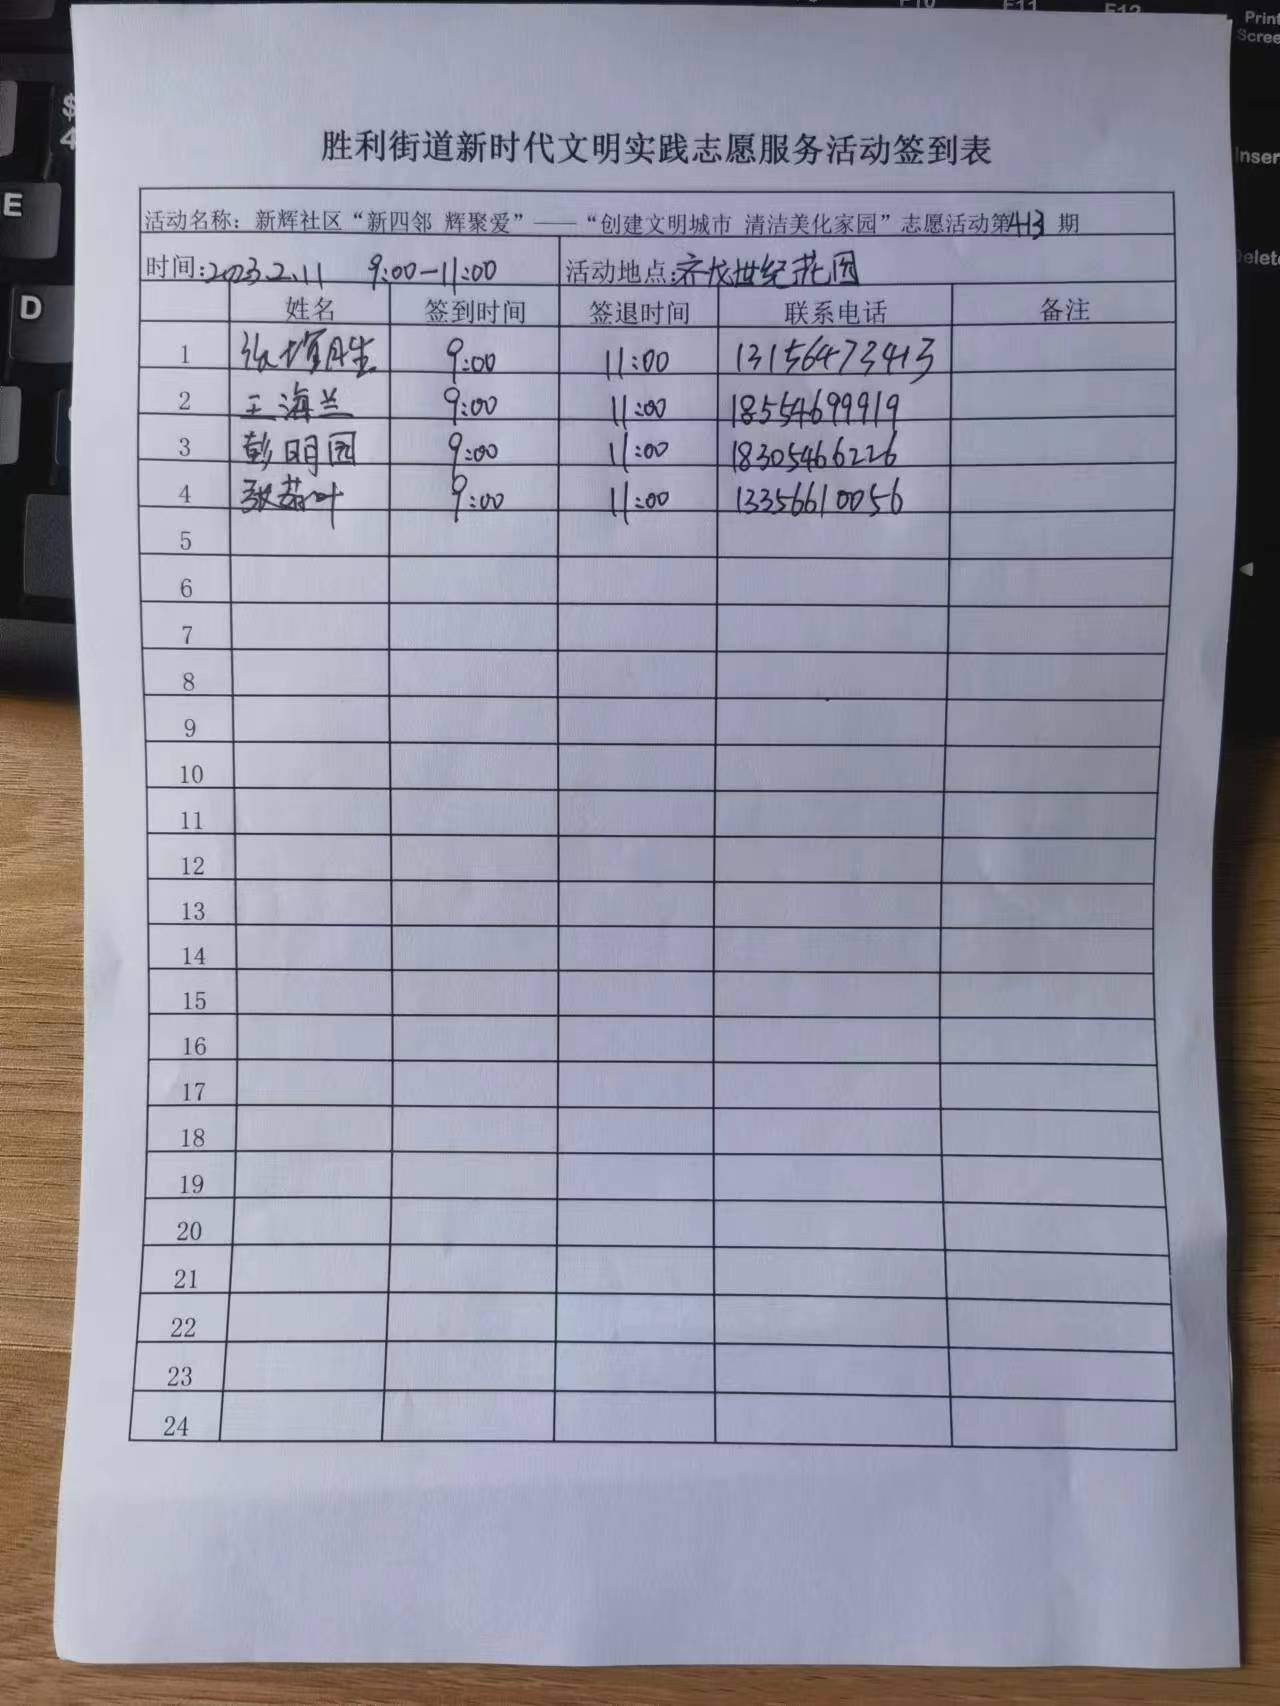 胜利街道新时代文明实践志愿服务活动签到表
活动名称：新辉社区“新四邻 辉聚爱”——“创建文明城市 清洁美化家园”志愿活动第413期
时间：2023.2.11 9:00-11:00 活动地点：世纪花园
姓名 签到时间 签退时间 联系电话 备注
1 9:00 11:00 13156473413
2 王海兰 9:00 11:00 18554699919
3 彭明园 9:00 11:00 18305466226
4 张荷叶 9:00 11:00 13356610056
5
6
7
8
9
10
11
12
13
14
15
16
17
18
19
20
21
22
23
24
E
D
$
4
F10
F11
F12
Print
Scree
Inser
Delete